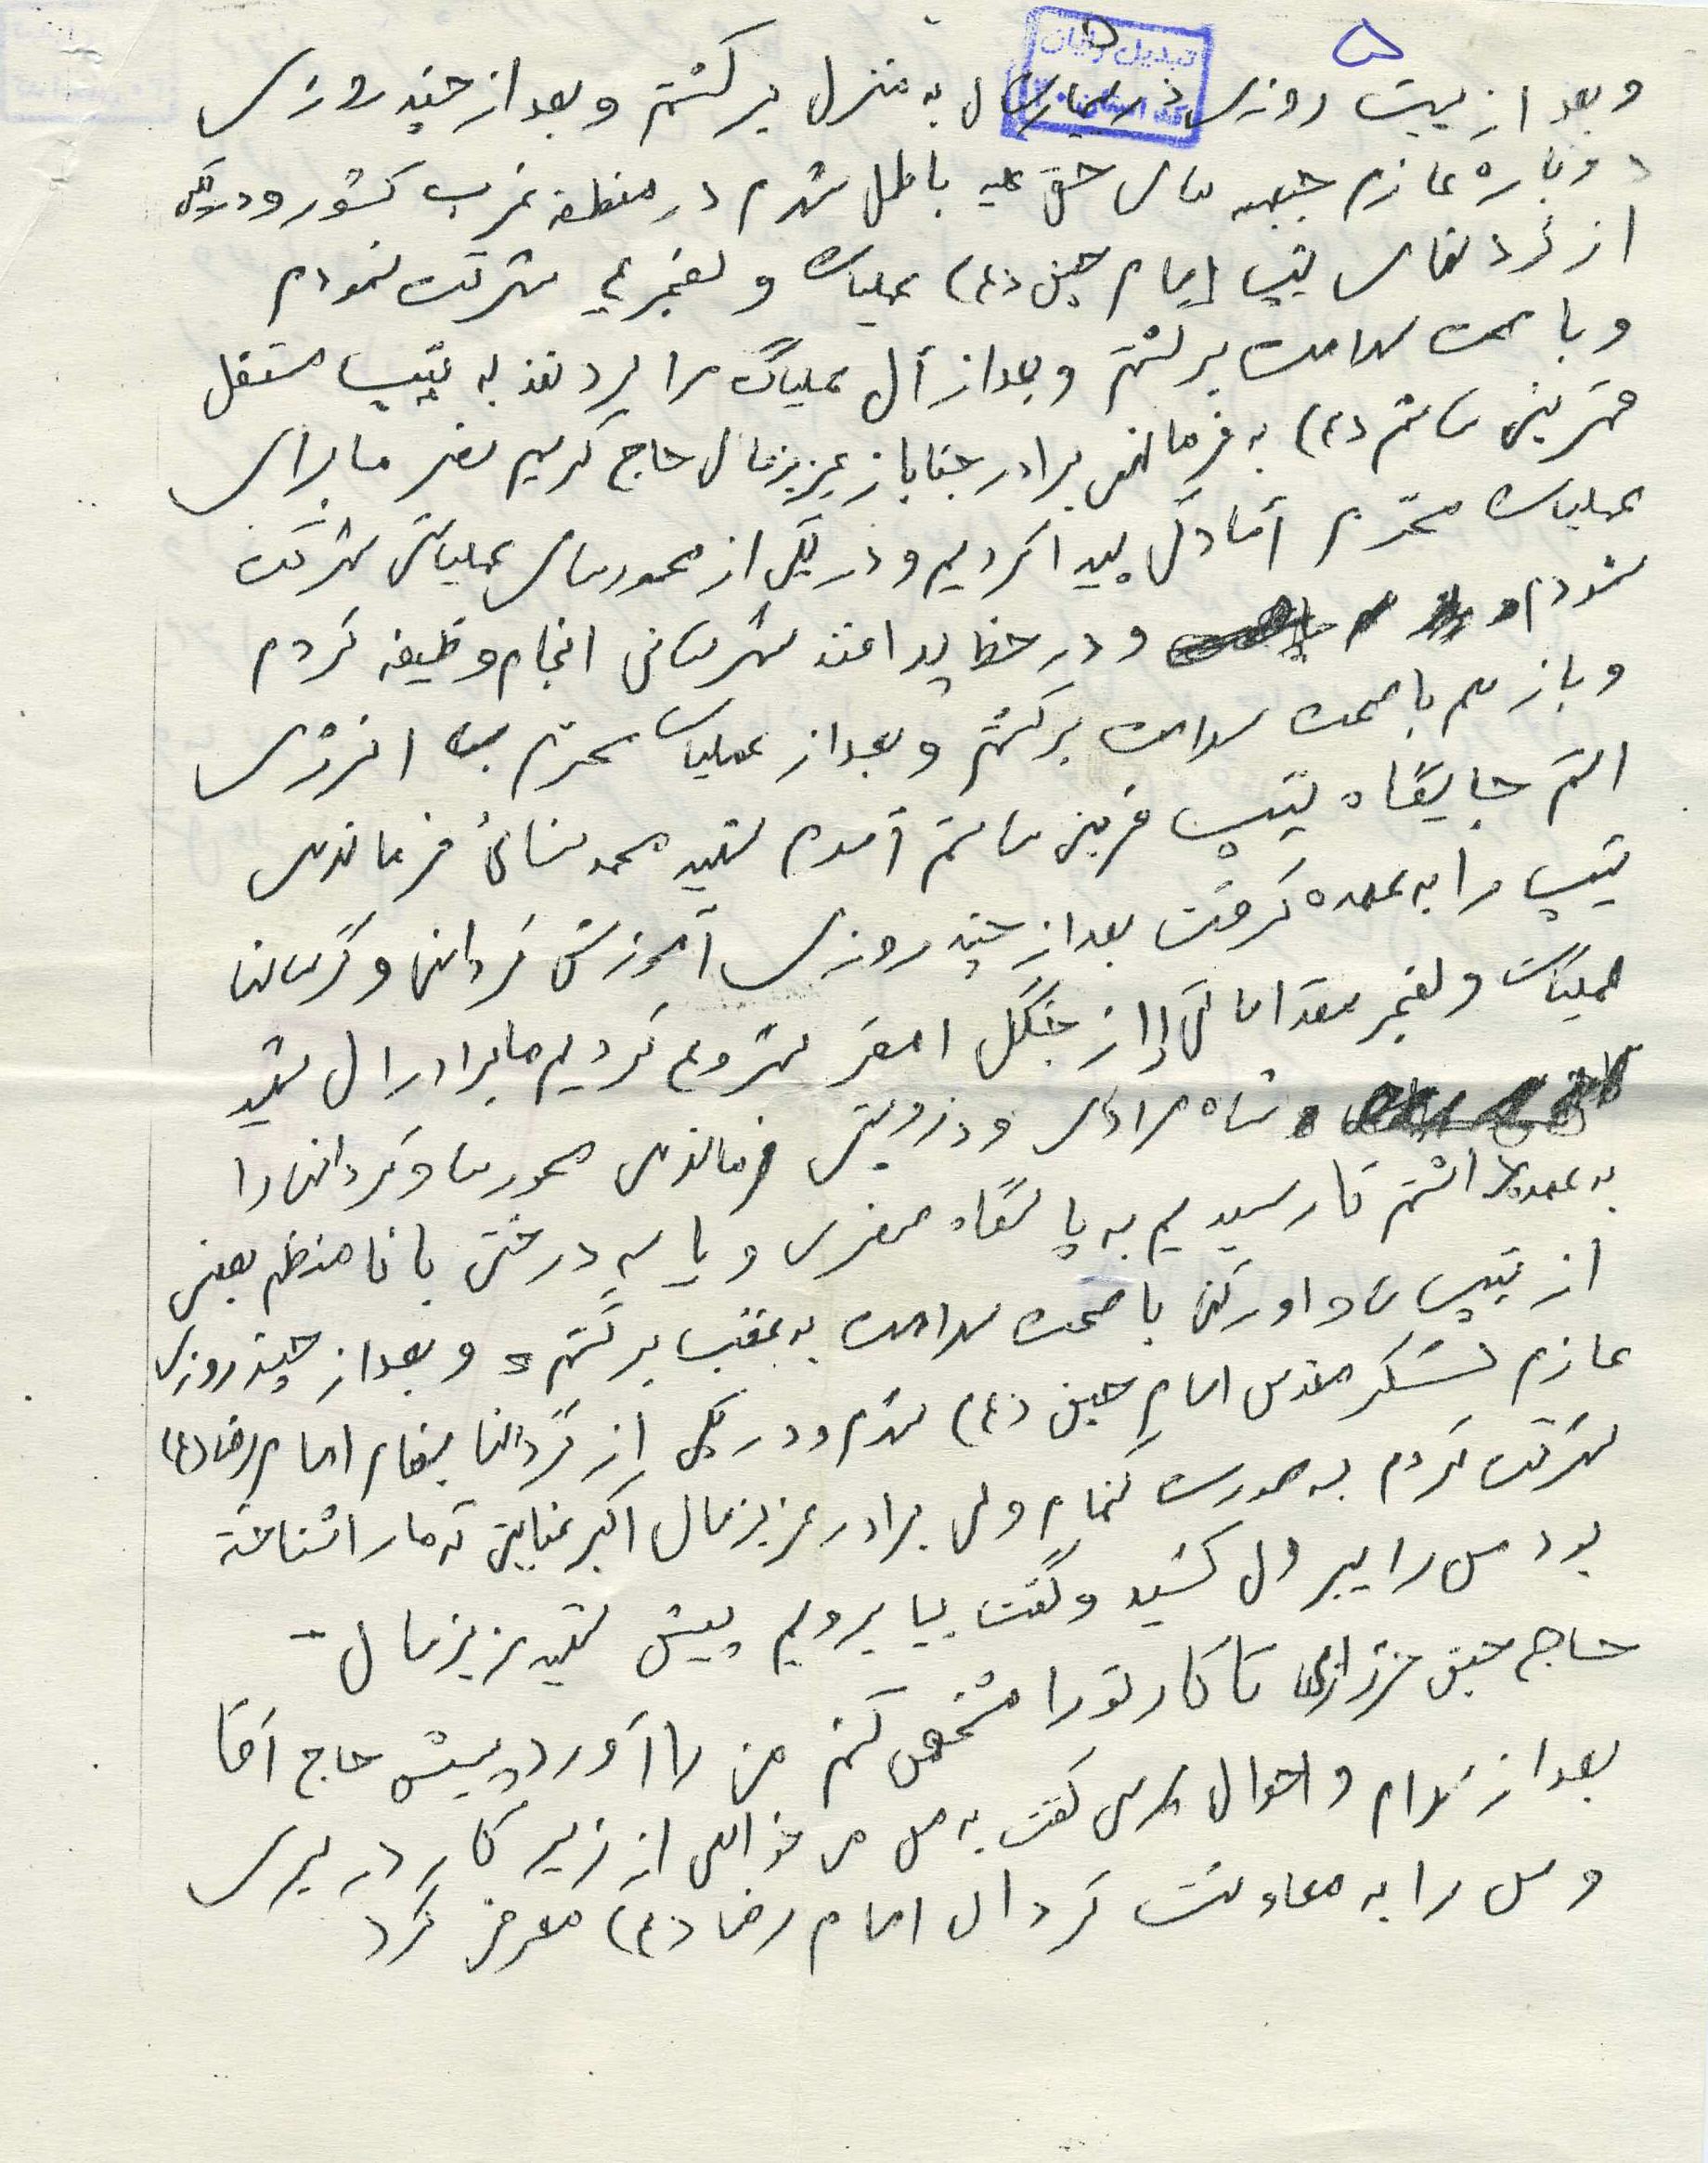 ۵
تبدیل رایان
و بعد از بیست روزی در بیمارستان به منزل برگشتم و بعد از چند روزی
دوباره عازم جبهه های حق علیه باطل شدم در منطقه غرب کشور و در یکی
از گردانهای تیپ امام حسین (ع) عملیات والفجر ۴ شرکت نمودم
و با صحت سلامت برگشتم و بعد از آن عملیات مرا بردند به تیپ مستقل
قمر بنی هاشم (ع) به فرماندهی برادر جانباز عزیزمان حاج کریم نصر ما برای
عملیات محرم آمادگی پیدا کردیم و در یکی از محورهای عملیاتی شرکت
نمودم و در خط پدافند شرهانی انجام وظیفه کردم
و باز هم با صحت سلامت برگشتم و بعد از عملیات محرم به انرژی
اتم جایگاه تیپ قمر بنی هاشم آمدم شهید محمد فرماندهی
تیپ را به عهده گرفت بعد از چند روزی آموزش گردانی و گردانها
عملیات والفجر مقدماتی را از جنگل امقر شروع کردیم ما برادران شهید
و شاه مرادی و درویش فرماندهی محورها و گردانی را
به عهده داشتم تا رسیدیم به پاسگاه صفری و با سه درختی با نا منظم بعضی
از تیپ ها و اورگنی با صحت سلامت به عقب برگشتم و بعد از چند روزی
عازم لشکر مقدس امام حسین (ع) شدم و در یکی از گردانها بنام امام رضا (ع)
شرکت کردم به صورت گمنام ولی برادر عزیزمان اکبر عنایتی که ما را شناخته
بود من را بیرون کشید و گفت بیا برویم پیش شهید عزیزمان -
حاج حسین خرازی تا کار تو را مشخص کنم من را آورد پیش حاج آقا
بعد از سلام و احوال پرسی گفت به من می خواهی از زیر کار در بری
و من را به معاونت گردان امام رضا (ع) معرفی کرد